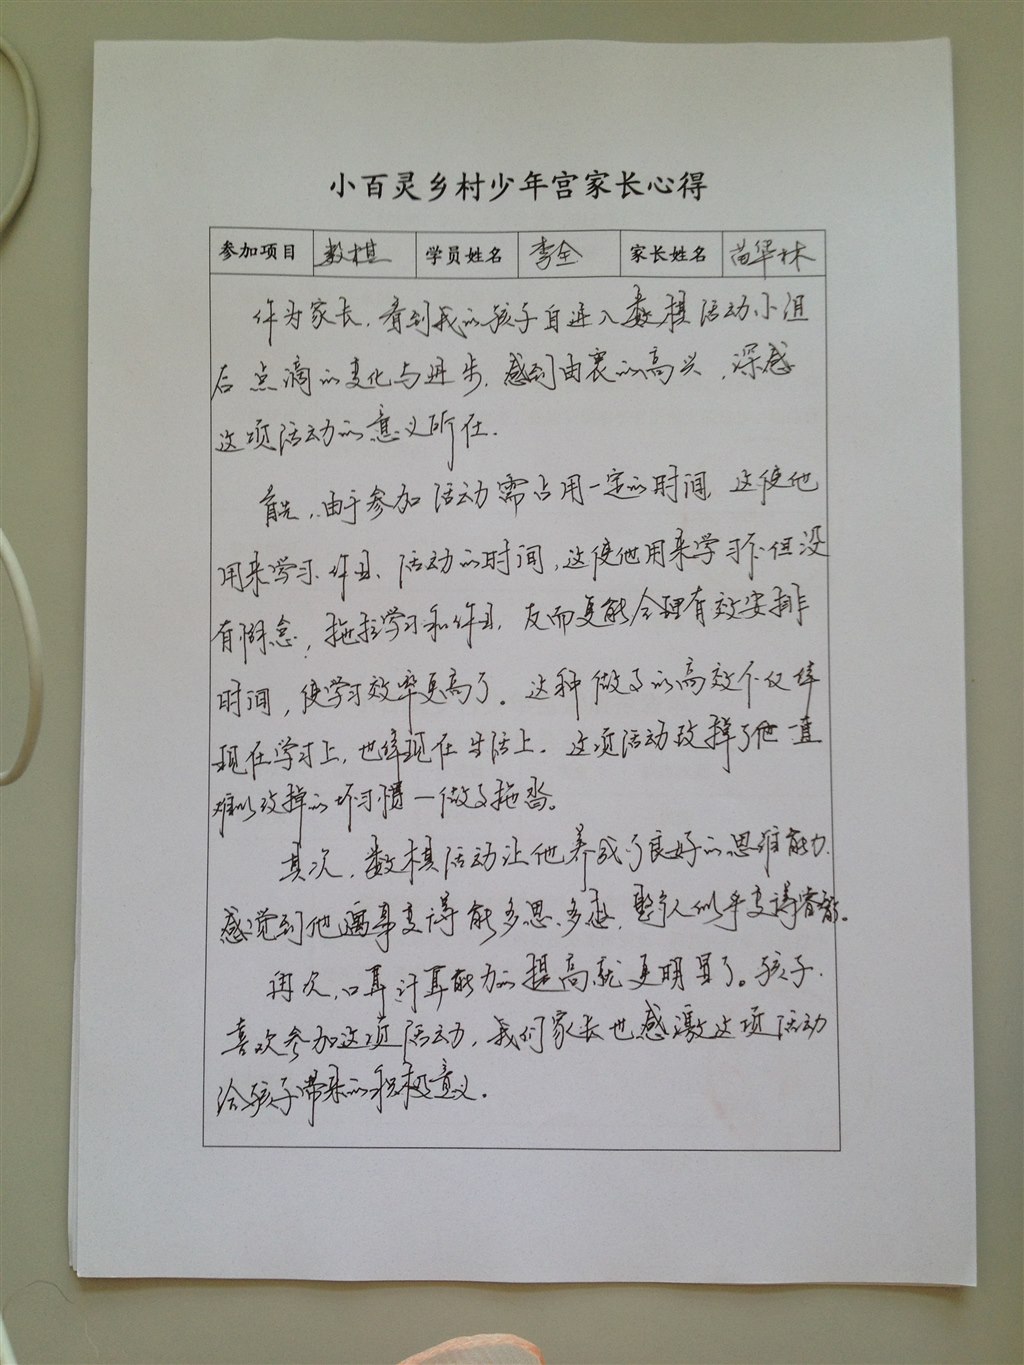 小百灵乡村少年宫家长心得
参加项目 数棋 学员姓名 李全 家长姓名 苗华林
作为家长，看到我的孩子自进入数棋活动小组
后点滴的变化与进步，感到由衷的高兴，深感
这项活动的意义所在.
首先，由于参加活动需占用一定的时间，这使他
用来学习、作业、活动的时间，这使他用来学习不但没
有，拖拉学习和作业，反而更能合理有效安排
时间，使学习效率更高了。这种做事的高效不仅体
现在学习上，也体现在生活上. 这项活动改掉了他一直
难以改掉的坏习惯一做事拖沓。
其次，数棋活动让他养成了良好的思维能力.
感觉到他遇事变得能多思、多想，整个人似乎变得睿智。
再次，口算计算能力的提高就更明显了。孩子
喜欢参加这项活动，我们家长也感激这项活动
给孩子带来的积极意义.